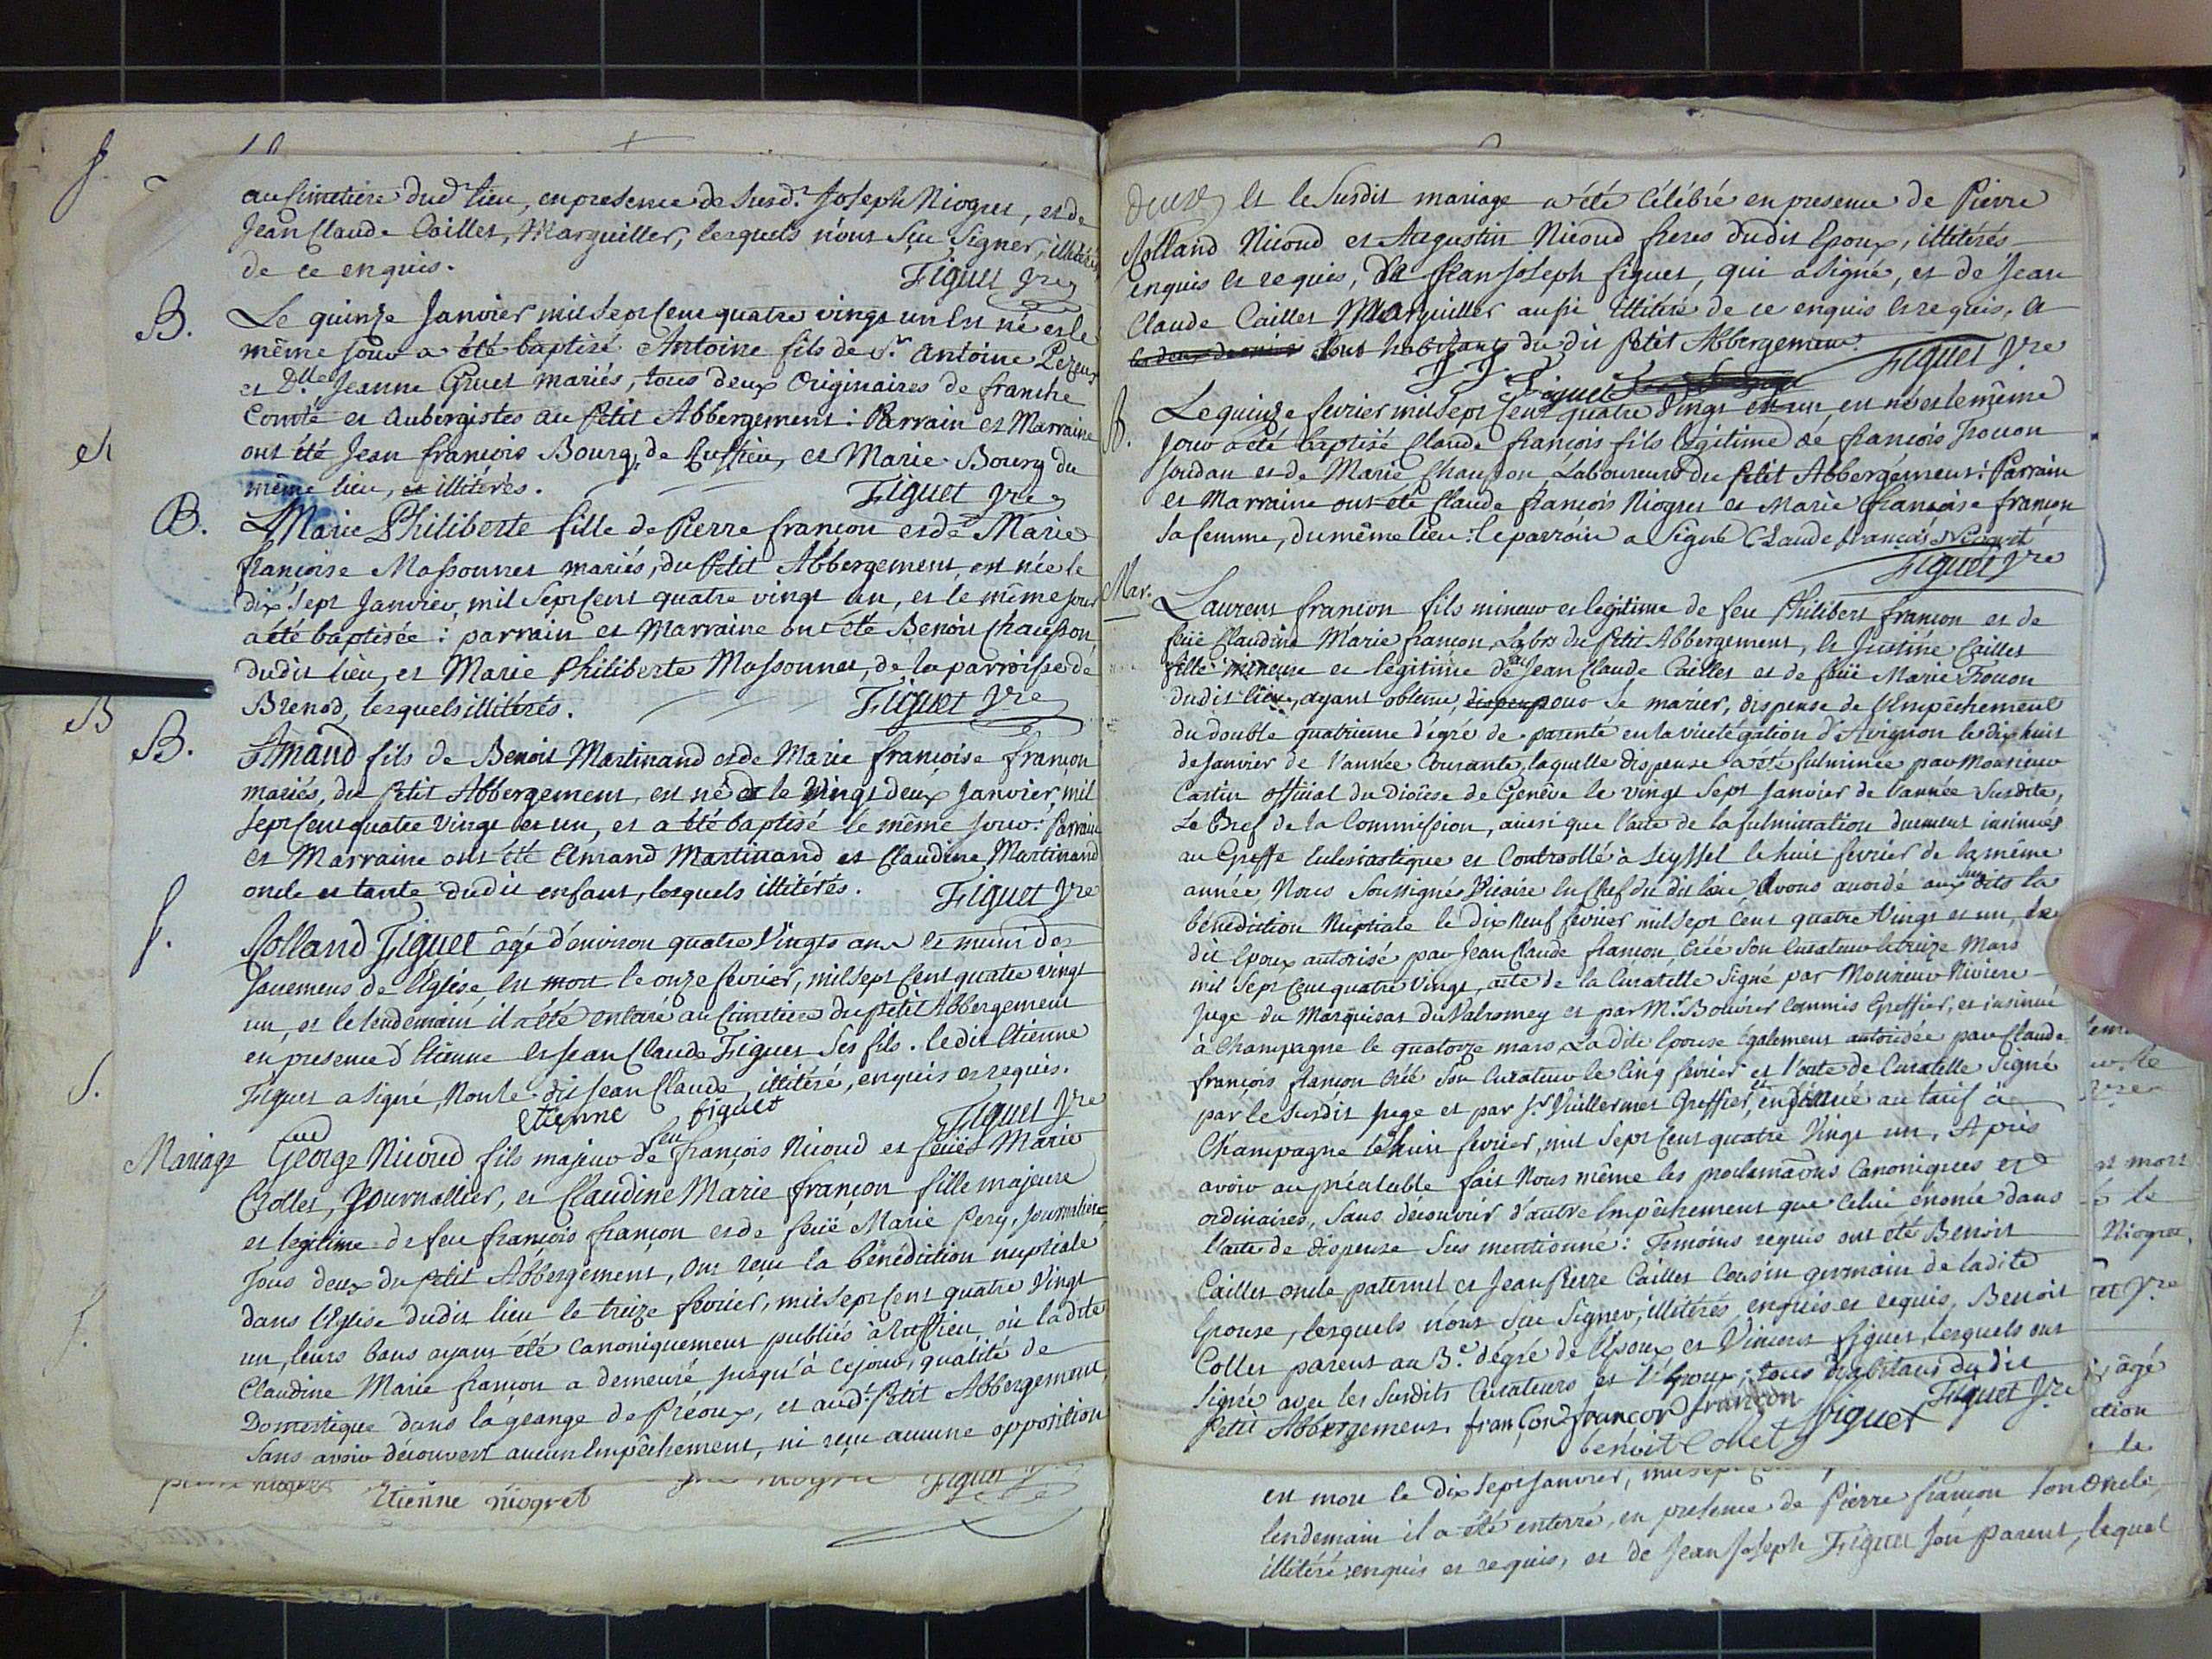 au Cimetiere dud.t lieu, en presence de susd.t Joseph Niogret, et de
Jean Claude Caillet, Marguiller, lesquels n'ont sçu signer, illitérés
de ce enquis. Figuet Vre
B. Le quinze Janvier mil sept cent quatre vingt un Est né et le
même jour a été baptisé Antoine fils de S.r Antoine
et D.lle Jeanne Gruet mariés, tous deux Originaires de franche
Comté et Aubergistes au Petit Abbergement : Parrain et Marraine
ont été Jean françois Bourg, de Ruffieu, et Marie Bourg du
même lieu, et illitérés. Figuet Vre
B. Marie Philiberte fille de Pierre françon et de Marie
françoise Massonnet mariés, du Petit Abbergement, est née le
dix sept Janvier, mil sept cent quatre vingt un, et le même jour
a été baptisée : parrain et Marraine ont été Benoit Chausson,
dudit lieu, et Marie Philiberte Massonnet, de la parroisse de
Brenod, lesquels illitérés. Figuet Vre
B. Amand fils de Benoit Martinand et de Marie françoise françon
mariés, du Petit Abbergement, est né le Vingt deux Janvier, mil
sept cent quatre Vingt et un, et a été baptisé le même jour : Parrain
et Marraine ont été Amand Martinand et Claudine Martinand
oncle et tante dudit enfant, lesquels illitérés. Figuet Vre
S. Rolland Figuet âgé d'environ quatre Vingts ans et muni des
Sacremens de l'Eglise, Est mort le onze fevrier, mil sept cent quatre vingt
un, et le lendemain il a été enterré au Cimetiere du petit Abbergement
en presence d'Etienne et Jean Claude Figuet Ses fils. ledit Etienne
Figuet a signé, Non le dit Jean Claude, illitéré, enquis et requis.
Etienne figuet Figuet Vre
Mariage George Nicoud fils majeur de feu françois Nicoud et feüe Marie
Collet, Journallier, et Claudine Marie françon fille majeure
et legitime de feu françois françon et de feüe Marie Pery, journaliere,
Tous deux du Petit Abbergement, Ont reçu la bénédiction nuptiale
dans l'Eglise dudit lieu le treize fevrier, mil sept cent quatre Vingt
un, leurs bans ayant été Canoniquement publiés à Ruffieu, où ladite
Claudine Marie françon a demeuré jusqu'à ce jour, qualité de
Domestique dans la grange de Préoux, et aud.t Petit Abbergement
Sans avoir découvert aucun Empêchement, ni reçu aucune opposition
Etienne niogret Figuet Vre
Et le Susdit mariage a été Célébré en presence de Pierre
Rolland Nicoud et Augustin Nicoud freres dudit Epoux, illitérés
enquis et requis, de Jean Joseph figuet, qui a signé, et de Jean
Claude Caillet Marguiller aussi illitéré de ce enquis et requis, et
les deux derniers tous habitants du dit petit Abbergement.
J. J. Figuet Figuet Vre
B. Le quinze fevrier mil sept cent quatre Vingt et un est né et le même
jour a été baptisé Claude françois fils légitime de françois Trouon
Joudan et de Marie Chausson, Laboureurs du Petit Abbergement : Parrain
et Marraine ont été Claude françois Niogret et Marie françoise françon
sa femme, du même lieu : le parrain a signé Claude françois Niogret
Figuet Vre
Mar. Laurent françon fils mineur et legitime de feu Philibert françon et de
feüe Claudine Marie françon, Labrs du Petit Abbergement, Et Justine Caillet
fille mineure et légitime de Jean Claude Caillet et de feüe Marie Trouon
dudit lieu, ayant obtenu, pour se marier, dispense de l'Empêchement
du double quatrieme dégré de parenté en la vicelégation d'Avignon le dix huit
de Janvier de l'année Courante, laquelle dispense a été fulminée par Monsieur
Castin official du Diocese de Genêve le vingt sept Janvier de l'année Susdite,
Le Bref de la Commission, ainsi que l'acte de la fulmination duement insinués
au Greffe Eclesiastique et Controllé à Seyssel le huit fevrier de la même
année, Nous Soussigné Vicaire En Chef du dit lieu Avons acordé aux susdits la
bénédiction Nuptiale le dix Neuf fevrier mil sept cent quatre Vingt et un, Le
dit Epoux autorisé par Jean Claude françon, Créé Son Curateur le treize Mars
mil Sept Cent quatre Vingt, acte de la Curatelle Signé par Monsieur Riviere
juge du Marquisat du Valromey et par M.r Bouvier Commis Greffier, et insinué
à Champagne le quatorze mars, Ladite Epouse Egalement autorisée par Claude
françois françon Créé Son Curateur le Cinq fevrier et l'acte de Curatelle Signé
par le susdit Juge et par S.r Vuillermet Greffier, et insinué au tarif à
Champagne le huit fevrier, mil sept Cent quatre Vingt un, Après
avoir au préalable fait Nous même les proclamaôns Canoniques et
ordinaires, Sans découvrir d'autre Empêchement que Celui énoncé dans
l'acte de dispense Sus mentionné : Temoins requis ont été Benoit
Caillet oncle paternel et Jean Pierre Caillet Cousin germain de ladite
Epouse, lesquels n'ont Sçu Signer, illitérés enquis et requis, Benoit
Collet parent au 3.e dégré de l'Epoux et Vincent figuet, lesquels ont
Signé avec les Susdits Curateurs et l'époux, tous habitans du dit
Petit Abbergement. françon françon françon Figuet Figuet Vre
benoit Collet
est mort le dix sept Janvier,
lendemain il a été enterré, en presence de Pierre françon son Oncle,
illitéré enquis et requis, et de Jean Joseph Figuet Son parent, lequel